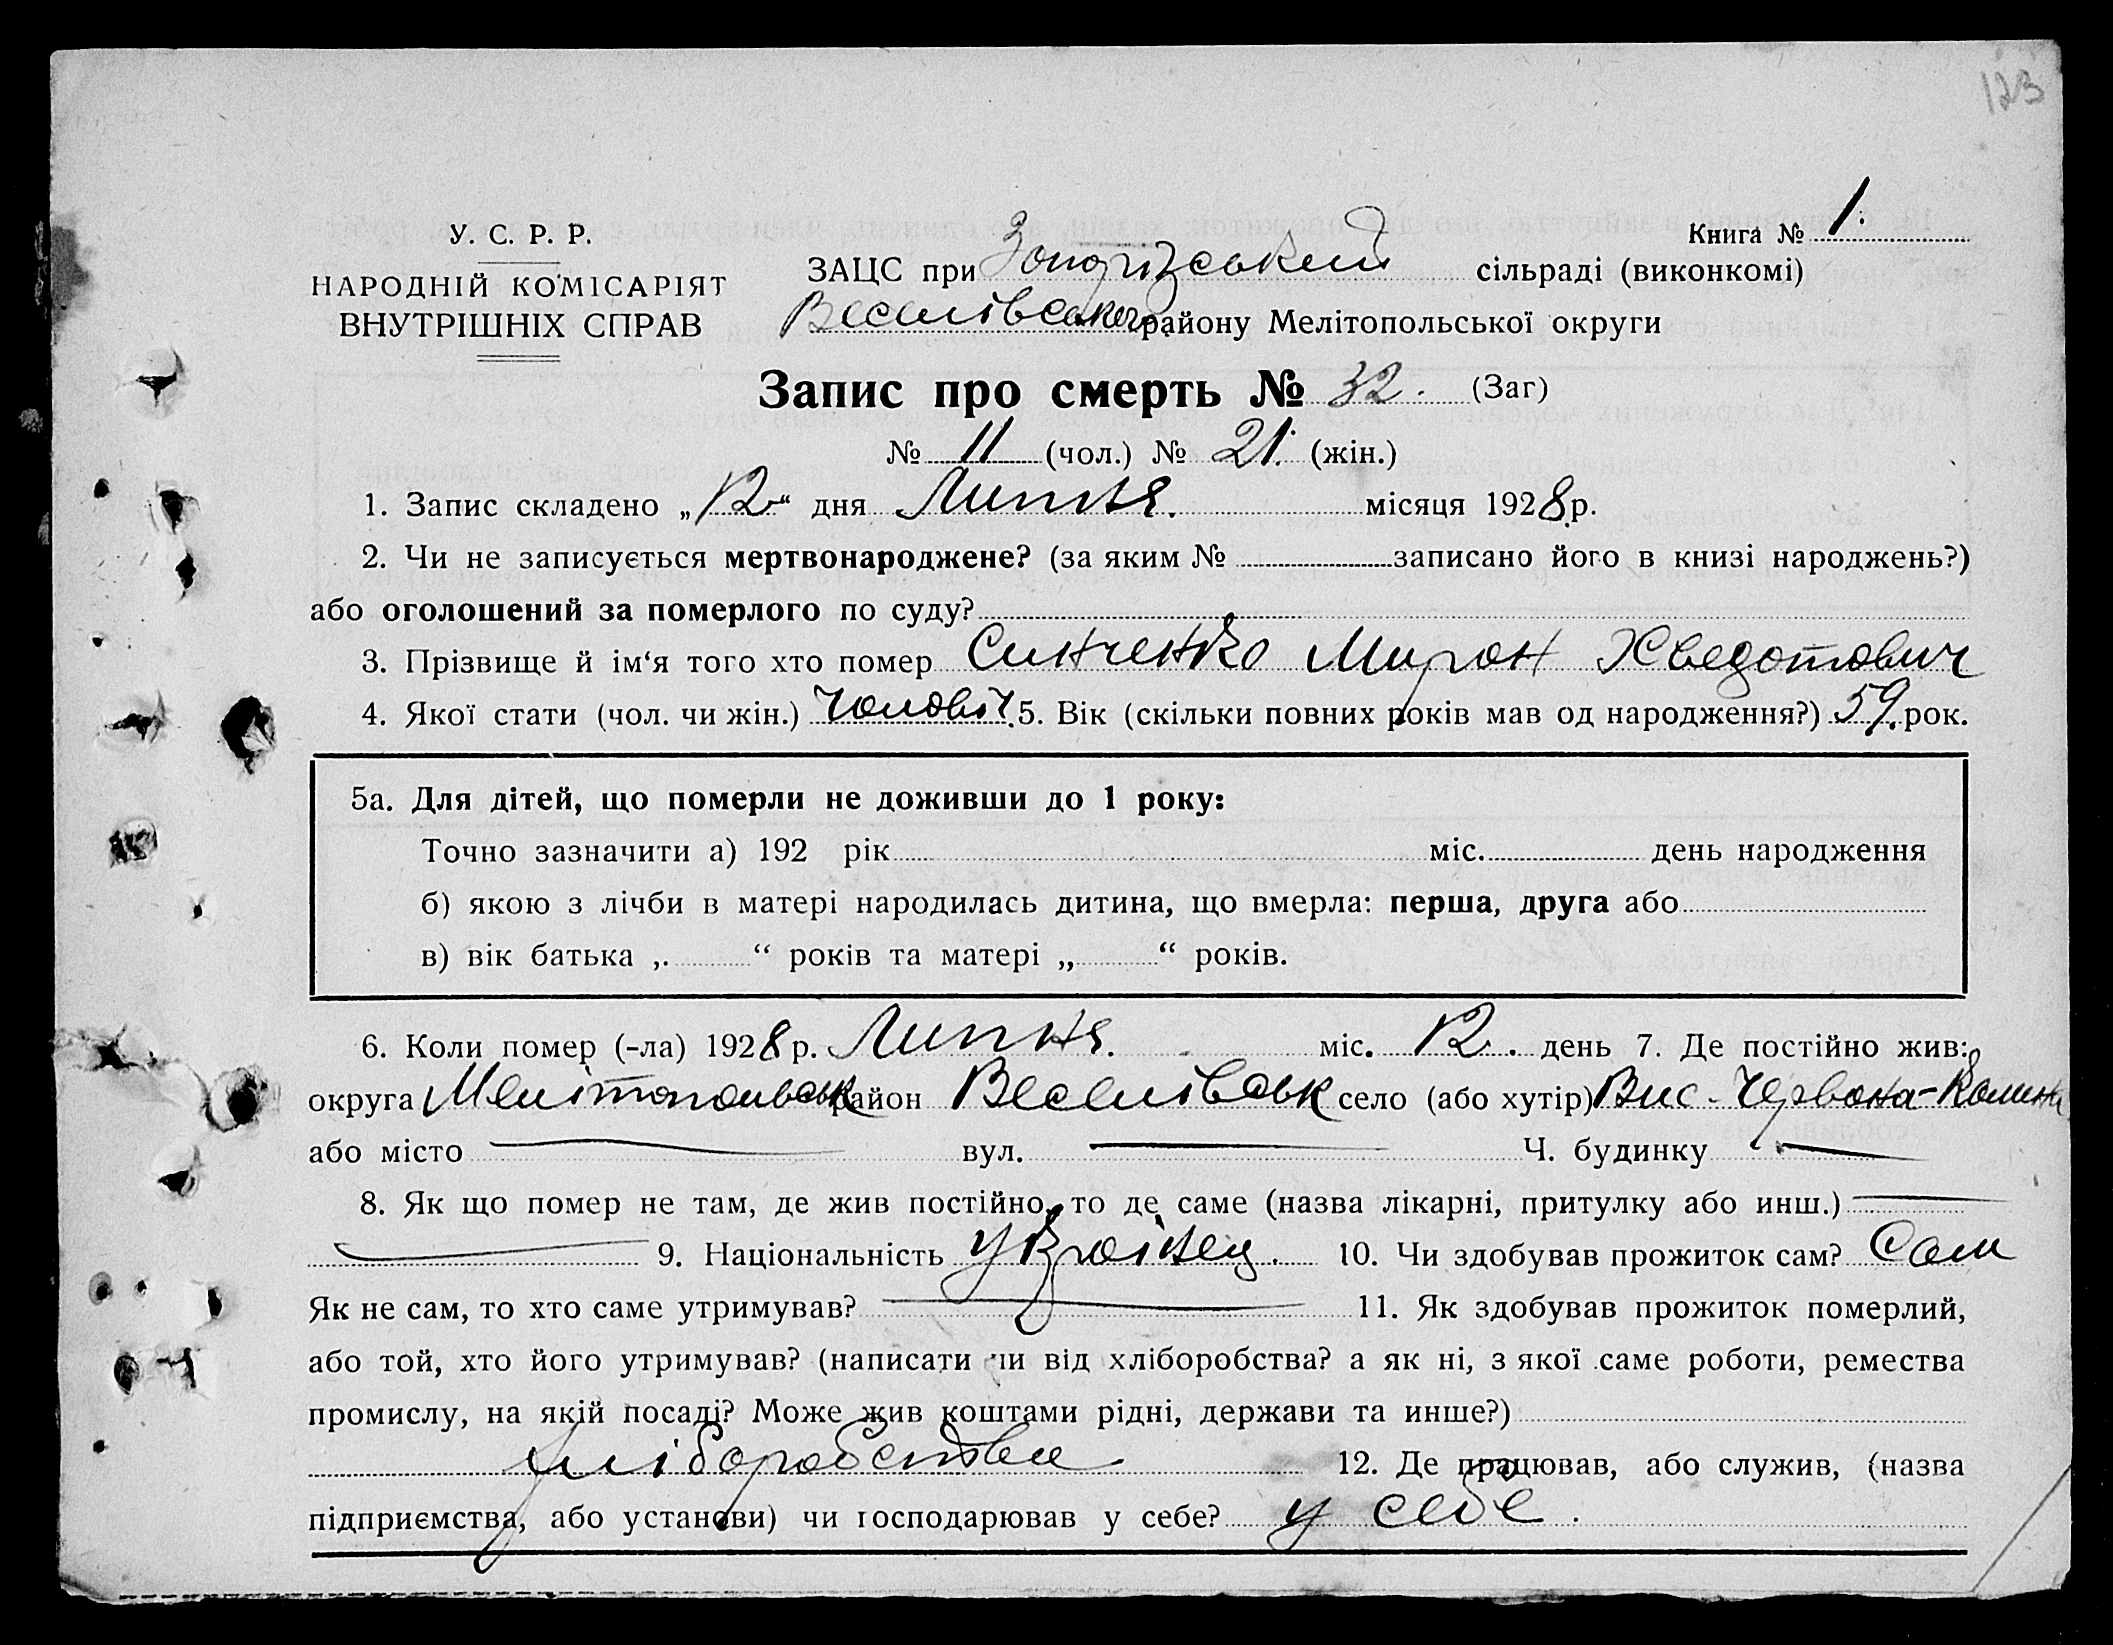 123
Книга № 1.
У. С. Р. Р.
НАРОДНІЙ КОМІСАРІЯТ
ВНУТРІШНІХ СПРАВ
ЗАЦС при сільраді (виконкомі)
Веселівського району Мелітопольської округи
Запис про смерть № 32. (Заг)
№ 11 (чол.) № 21. (жін.)
1. Запис складено „12“ дня Липня. місяця 1928 р.
2. Чи не записується мертвонароджене? (за яким № записано його в книзі народжень?)
або оголошений за померлого по суду?
3. Прізвище й ім‘я того хто помер Синченко Мирон Хведотович
4. Якої стати (чол. чи жін.) Чоловіч. 5. Вік (скільки повних років мав од народження?) 59. рок.
5а. Для дітей, що померли не доживши до 1 року:
Точно зазначити а) 192 рік міс. день народження
б) якою з лічби в матері народилась дитина, що вмерла: перша, друга або
в) вік батька „ “ років та матері „ “ років.
6. Коли помер (-ла) 1928 р. Липня. міс. 12. день 7. Де постійно жив:
округа Мелітопольськ район Веселівськ село (або хутір) Вис. Червона-Колина
або місто — вул. — Ч. будинку —
8. Як що помер не там, де жив постійно, то де саме (назва лікарні, притулку або инш.) —
— 9. Національність Українец. 10. Чи здобував прожиток сам? Сам
Як не сам, то хто саме утримував? — 11. Як здобував прожиток померлий,
або той, хто його утримував? (написати чи від хліборобства? а як ні, з якої саме роботи, ремества
промислу, на якій посаді? Може жив коштами рідні, держави та инше?)
хліборобства 12. Де працював, або служив, (назва
підприємства, або установи) чи господарював у себе? у себе.